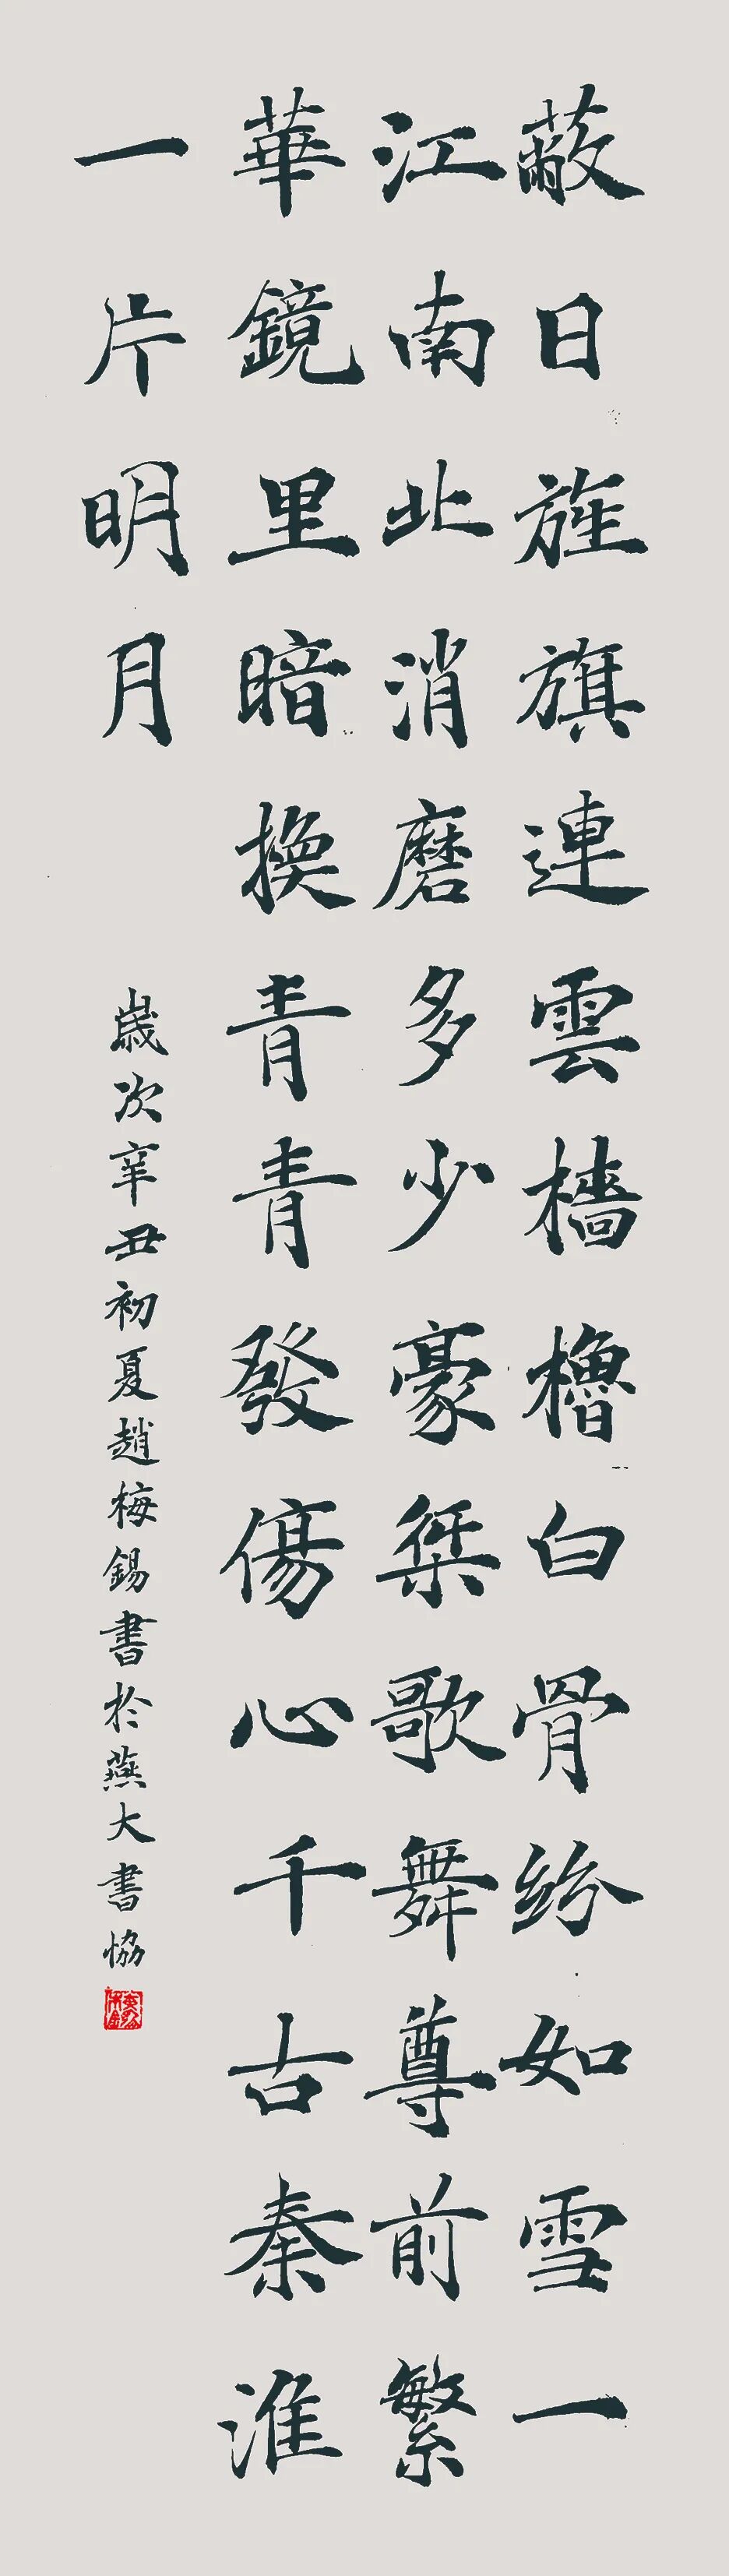 蔽日旌旗連雲檣櫓白骨紛如雪一
江南北消磨多少豪桀歌舞尊前繁
華鏡里暗換青青發傷心千古秦淮
一片明月
歲次辛丑初夏趙梅錫書於燕大書協